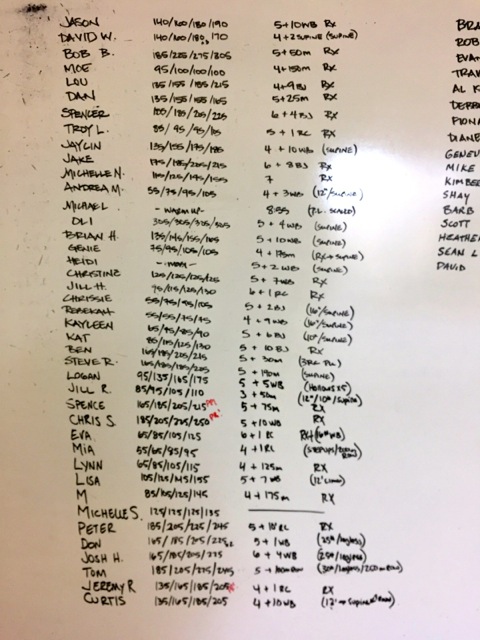 JASON 140/160/180/190 5+10WB RX
DAVID W. 140/160/180/170 4+25UPINE (SUPINE)
BOB B. 185/225/275/305 5+50m RX
MOE 95/100/100/100 4+150m RX
LOU 135/155/185/215 4+9BJ RX
DAN 135/155/155/165 5+25m RX
SPENCER 6+4BJ RX
TROY L. 5+1RC RX
JAYLIN 135/155/175/185 4+10WB (SUPINE)
JAKE 175/185/205/215 6+8BJ RX
MICHELLE N. 7 RX
ANDREA M. 55/75/95/105 4+3WB (12"/SUPINE)
MICHAEL -WARM UP- 8:35
OLI 5+4WB (SUPINE)
BRIAN H. 135/145/155/165 5+10WB (SUPINE)
GENIE 75/95/105/105 4+175m (RX+SUPINE)
HEIDI 5+2WB (SUPINE)
CHRISTINE 125/125/125/125 5+7WB RX
JILL H. 95/115/125/130 6+1RC RX
CHRISSIE 55/75/95/105 5+2BJ (16"/SUPINE)
REBEKAH 55/55/75/75 4+9WB (16"/SUPINE)
KAYLEEN 65/75/85/90 5+6BJ (10"/SUPINE)
KAT 85/115/125/130 5+10BJ RX
BEN 165/185/205/215 5+30m
STEVE R. 165/185/185/205 5+190m (SUPINE)
LOGAN 95/135/165/175 5+5WB (HOLLOWS X5)
JILL R. 85/95/105/110 3+50m (12"/10"/SUPINE)
SPENCE 165/185/205/215 PR 5+75m RX
CHRIS S. 185/205/225/250 PR 5+10WB RX
EVA 65/85/105/125 6+1RC
MIA 55/65/85/95 4+1RC
LYNN 65/85/105/115 4+125m RX
LISA 105/125/145/155 5+7WB
M 85/105/125/145 4+175m RX
MICHELLE S. 125/125/125/135
PETER 185/205/225/245 5+10RC RX
DON 165/185/205/225 5+1WB
JOSH H. 165/185/205/275 6+4WB
TOM 185/205/225/245
JEREMY R 135/165/185/205 4+1RC RX
CURTIS 135/165/185/205 4+10WB
BRA
ROB
EVAN
TRAV
AL K
DEBB
FIONA
DIANE
GENEV
MIKE
KIMBE
SHAY
BARB
SCOTT
HEATHE
SEAN L
DAVID